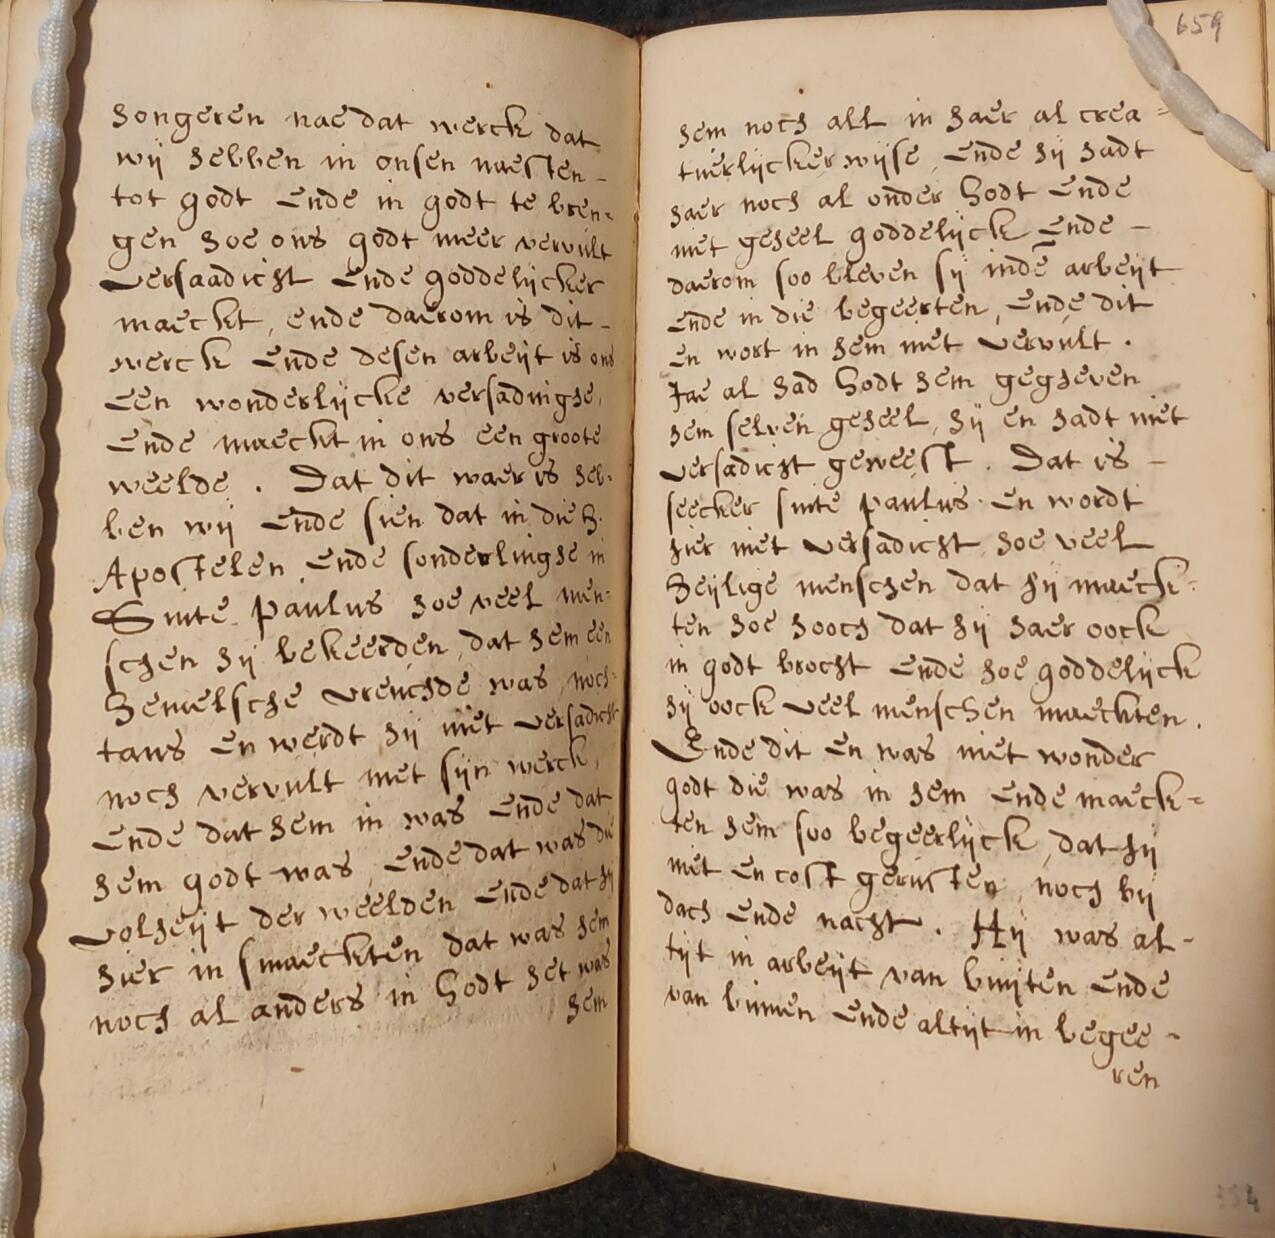 hongeren nae dat werck dat
wij hebben in onsen naesten -
tot godt ende in godt te bren=
gen hoe ons godt meer vervult
versaadicht ende goddelijcker
maeckt, ende daerom is dit -
werck ende desen arbeijt is ons
een wonderlijcke versadinghe,
ende maeckt in ons een groote
weelde . Dat dit waer is heb=
ben wij ende sien dat in die H.
Apostelen, ende sonderlinghe in
Sinte paulus hoe veel men=
schen hij bekeerden, dat hem een
hemelsche vreuchde was, noch=
tans en werdt hij niet versadicht
noch vervult met sijn werck,
ende dat hem in was ende dat
hem godt was, ende dat was die
volheijt der weelden ende dat hij
hier in smaeckten dat was hem
noch al anders in Godt het was
hem
659
hem noch all in haer al crea=
tuerlijckerwijse, ende hij hadt
haer noch al onder Godt ende
niet geheel goddelijck ende -
daerom soo bleven sij indē arbeijt
ende in die begeerten, ende dit
en wort in hem niet vervult .
Jae al had Godt hem gegheven
hem selven geheel, hij en hadt niet
versadicht geweest . Dat is -
seecker sinte paulus en wordt
hier niet versadicht hoe veel
heijlige menschen dat hij maeck=
ten hoe hooch dat hij haer oock
in godt brocht ende hoe goddelijck
hij oock veel menschen maeckten .
Ende dit en was niet wonder
godt die was in hem ende maeck=
ten hem soo begeerlijck, dat hij
niet en cost gerusten, noch bij
dach ende nacht . Hij was al-
tijt in arbeijt van buijten ende
van binnen ende altijt in begee-
ren
354